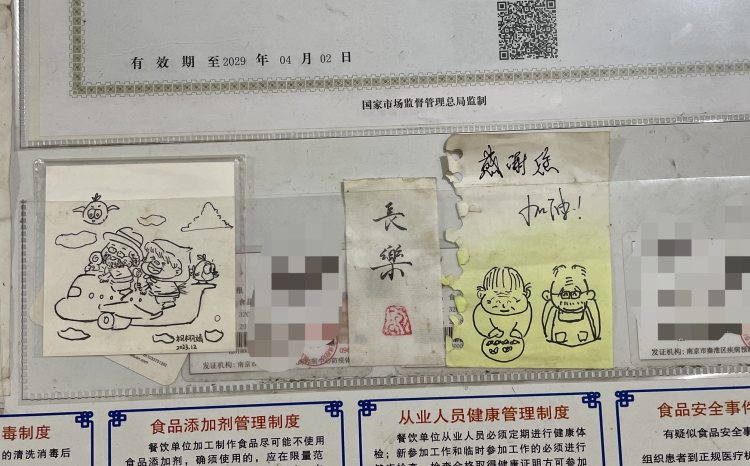 有效期至2029年04月02日
国家市场监督管理总局监制
感谢您
加油！
長
樂
2023.12
发证机构：南京市秦淮区疾病预
毒制度
的清洗消毒后
食品添加剂管理制度
餐饮单位加工制作食品尽可能不使用
食品添加剂，确须使用的，应在限量范
从业人员健康管理制度
餐饮单位从业人员必须定期进行健康体
检；新参加工作和临时参加工作的必须进行
食品安全事件
有疑似食品安全事
组织患者到正规医疗机